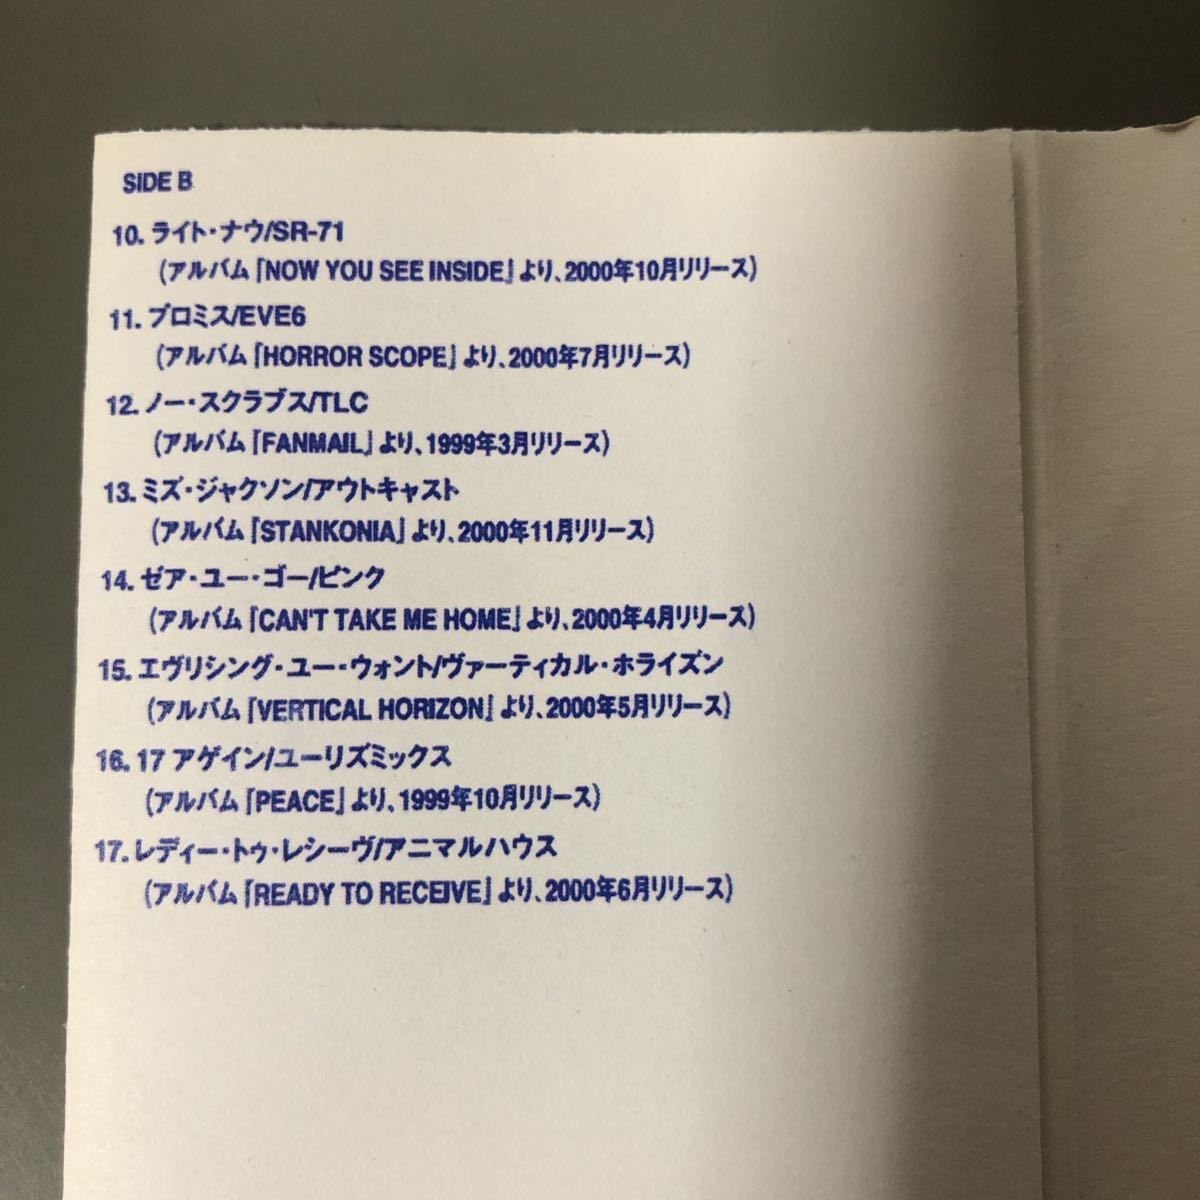 SIDE B
10. ライト・ナウ/SR-71
(アルバム『NOW YOU SEE INSIDE』より、2000年10月リリース)
11. プロミス/EVE6
(アルバム『HORROR SCOPE』より、2000年7月リリース)
12. ノー・スクラブス/TLC
(アルバム『FANMAIL』より、1999年3月リリース)
13. ミズ・ジャクソン/アウトキャスト
(アルバム『STANKONIA』より、2000年11月リリース)
14. ゼア・ユー・ゴー/ピンク
(アルバム『CAN'T TAKE ME HOME』より、2000年4月リリース)
15. エヴリシング・ユー・ウォント/ヴァーティカル・ホライズン
(アルバム『VERTICAL HORIZON』より、2000年5月リリース)
16. 17 アゲイン/ユーリズミックス
(アルバム『PEACE』より、1999年10月リリース)
17. レディー・トゥ・レシーヴ/アニマルハウス
(アルバム『READY TO RECEIVE』より、2000年6月リリース)